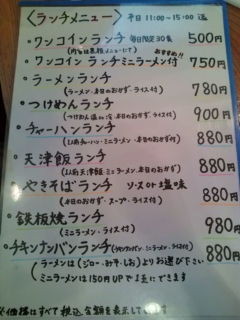 〈ランチメニュー〉 平日 11:00～15:00迄
・ワンコインランチ 毎日限定30食 500円
(内容は黒板メニューにて) おすすめ!!
・ワンコインランチミニラーメン付 750円
・ラーメンランチ 780円
(ラーメン・本日のおかず・ライス付)
・つけめんランチ 900円
(つけめん ・本日のおかず・ライス付)
・チャーハンランチ 880円
(チャーハン・ミニラーメン・本日のおかず)
・天津飯ランチ 880円
(天津飯・ミニラーメン・本日のおかず)
・やきそばランチ ソースor塩味 880円
(本日のおかず・スープ・ライス付)
・鉄板焼ランチ 980円
(ミニラーメン・ライス付)
・チキンナンバンランチ (チキンナンバン・ミニラーメン・ライス付) 880円
(ラーメンは(ジロー・みそ・しお)よりお選び下さい
ミニラーメンは150円UPで1玉にできます
※価格はすべて税込金額を表示してます